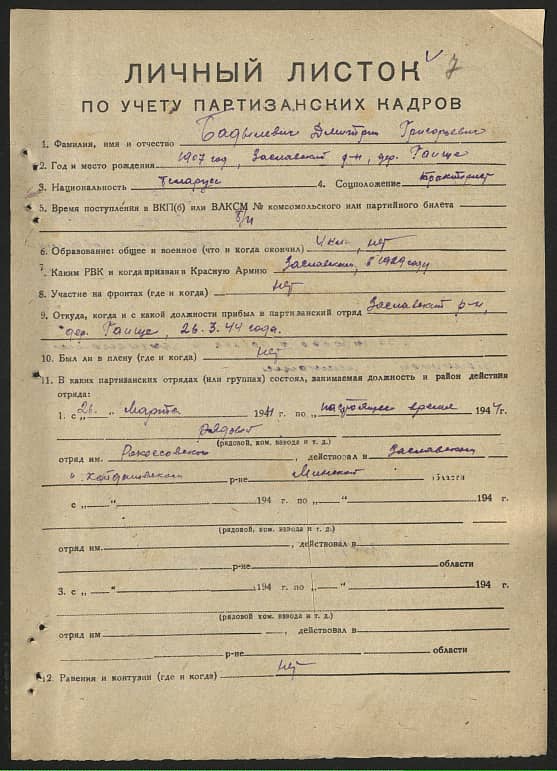 7
ЛИЧНЫЙ ЛИСТОК
ПО УЧЕТУ ПАРТИЗАНСКИХ КАДРОВ
1. Фамилия, имя и отчество Бадылевич Дмитрий Григорьевич
2. Год и место рождения 1907 год, Заславский р-н, дер. Гаище
3. Национальность беларус 4. Соцположение тракторист
5. Время поступления в ВКП(б) или ВЛКСМ № комсомольского или партийного билета
б/п
6. Образование: общее и военное (что и когда окончил) 4 кл., нет
7. Каким РВК и когда призван в Красную Армию Заславским, в 1929 году
8. Участие на фронтах (где и когда) нет
9. Откуда, когда и с какой должности прибыл в партизанский отряд Заславский р-н,
дер. Гаище, 26.3.44 года.
10. Был ли в плену (где и когда) нет
11. В каких партизанских отрядах (или группах) состоял, занимаемая должность и район действия
отряда:
1. с „26.“ марта 1944 г. по настоящее время 1944 г.
рядовой
(рядовой, ком. взвода и т. д.)
отряд им. Рокоссовского, действовал в Заславском
и Койдановском р-не Минской области
с „ “ 194 г. по „ “ 194 г.
(рядовой, ком. взвода и т. д.)
отряд им. , действовал в
р-не области
3. с „ “ 194 г. по „ “ 194 г.
(рядовой ком. взвода и т. д.)
отряд им , действовал в
р-не области
12. Ранения и контузии (где и когда) нет